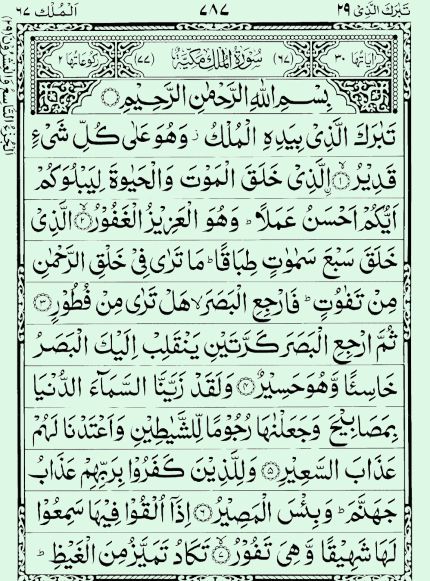 تَبٰرَكَ الَّذِیْ ۲۹
۷۸۷
اَلْمُلْك ۶۷
اٰیَاتُهَا ۳۰
(۶۷) سُوْرَةُ الْمُلْكِ مَكِّیَّةٌ (۷۷)
رُكُوْعَاتُهَا ۲
بِسْمِ اللّٰهِ الرَّحْمٰنِ الرَّحِیْمِ
تَبٰرَكَ الَّذِیْ بِیَدِهِ الْمُلْكُ ؗ وَهُوَ عَلٰی كُلِّ شَیْءٍ
قَدِیْرُ ۙ﴿۱﴾ اِلَّذِیْ خَلَقَ الْمَوْتَ وَالْحَیٰوةَ لِیَبْلُوَكُمْ
اَیُّكُمْ اَحْسَنُ عَمَلًا ؕ وَهُوَ الْعَزِیْزُ الْغَفُوْرُ ۙ﴿۲﴾ الَّذِیْ
خَلَقَ سَبْعَ سَمٰوٰتٍ طِبَاقًا ؕ مَا تَرٰی فِیْ خَلْقِ الرَّحْمٰنِ
مِنْ تَفٰوُتٍ ؕ فَارْجِعِ الْبَصَرَ ۙ هَلْ تَرٰی مِنْ فُطُوْرٍ ﴿۳﴾
ثُمَّ ارْجِعِ الْبَصَرَ كَرَّتَیْنِ یَنْقَلِبْ اِلَیْكَ الْبَصَرُ
خَاسِئًا وَّهُوَ حَسِیْرٌ ﴿۴﴾ وَلَقَدْ زَیَّنَّا السَّمَآءَ الدُّنْیَا
بِمَصَابِیْحَ وَجَعَلْنٰهَا رُجُوْمًا لِّلشَّیٰطِیْنِ وَاَعْتَدْنَا لَهُمْ
عَذَابَ السَّعِیْرِ ﴿۵﴾ وَلِلَّذِیْنَ كَفَرُوْا بِرَبِّهِمْ عَذَابُ
جَهَنَّمَ ؕ وَبِئْسَ الْمَصِیْرُ ﴿۶﴾ اِذَاۤ اُلْقُوْا فِیْهَا سَمِعُوْا
لَهَا شَهِیْقًا وَّ هِیَ تَفُوْرُ ۙ﴿۷﴾ تَكَادُ تَمَیَّزُ مِنَ الْغَیْظِ ؕ